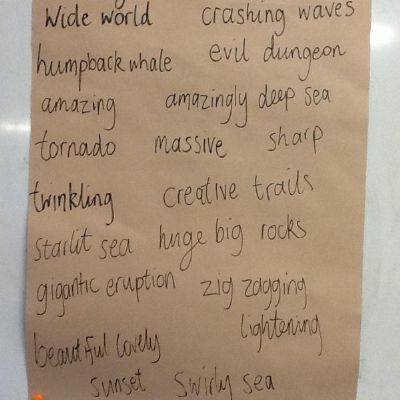 wide world crashing waves
humpback whale evil dungeon
amazing amazingly deep sea
tornado massive sharp
twinkling creative trails
starlit sea huge big rocks
gigantic eruption zig zagging
lightening
beautiful lovely
sunset swirly sea